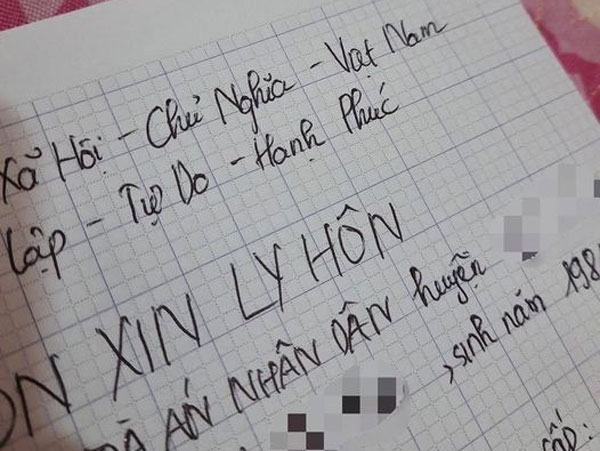 Xã Hội - Chủ Nghĩa - Việt Nam
Lập - Tự Do - Hạnh Phúc
ƠN XIN LY HÔN
OÀ ÁN NHÂN DÂN huyện
, sinh năm 198
cấp: